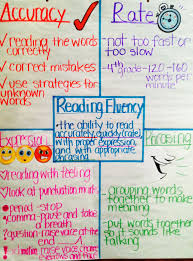 Accuracy
• reading the words
correctly
• correct mistakes
• use strategies for
unknown
words
Rate
• not too fast or
too slow
• 4th grade-120-160
words per
minute
Reading Fluency
• the ability to read
accurately, quickly (rate),
with proper expression,
and with appropriate
phrasing
Expression
• reading with feeling
• look at punctuation marks
• period-stop
comma-pause and take
a breath
question-raise voice at the
end
Phrasing
• grouping words
together to make
meaning
• put words together
so it sounds like
talking